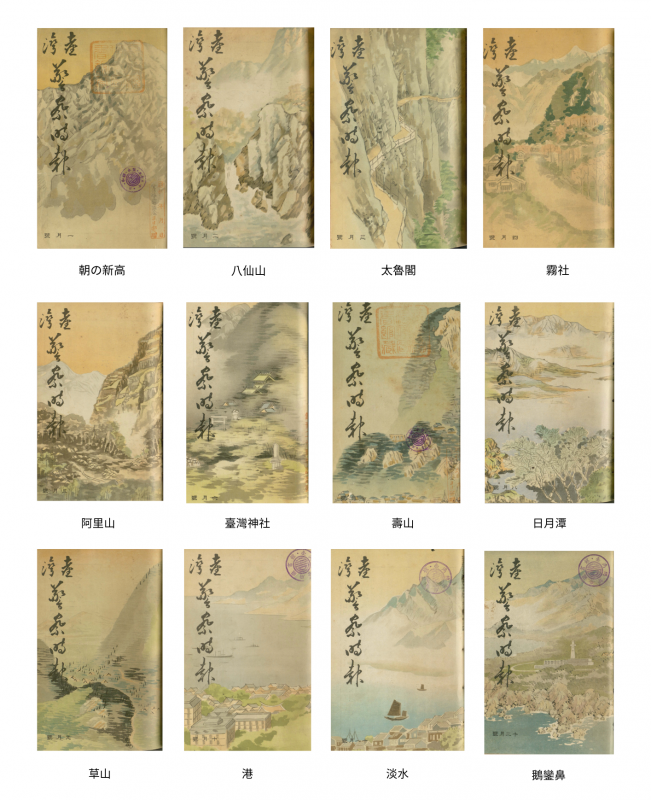 臺灣
警察時報
一月號
朝の新高
臺灣
警察時報
二月號
八仙山
臺灣
警察時報
三月號
太魯閣
臺灣
警察時報
四月號
霧社
臺灣
警察時報
阿里山
臺灣
警察時報
六月號
臺灣神社
臺灣
警察時報
壽山
臺灣
警察時報
日月潭
臺灣
警察時報
九月號
草山
臺灣
警察時報
港
臺灣
警察時報
淡水
臺灣
警察時報
十二月號
鵝鑾鼻